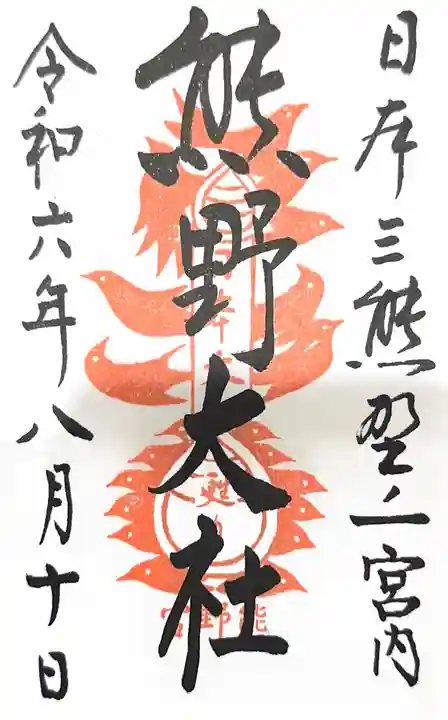 日本三熊野一宮内
熊野大社
令和六年八月十日